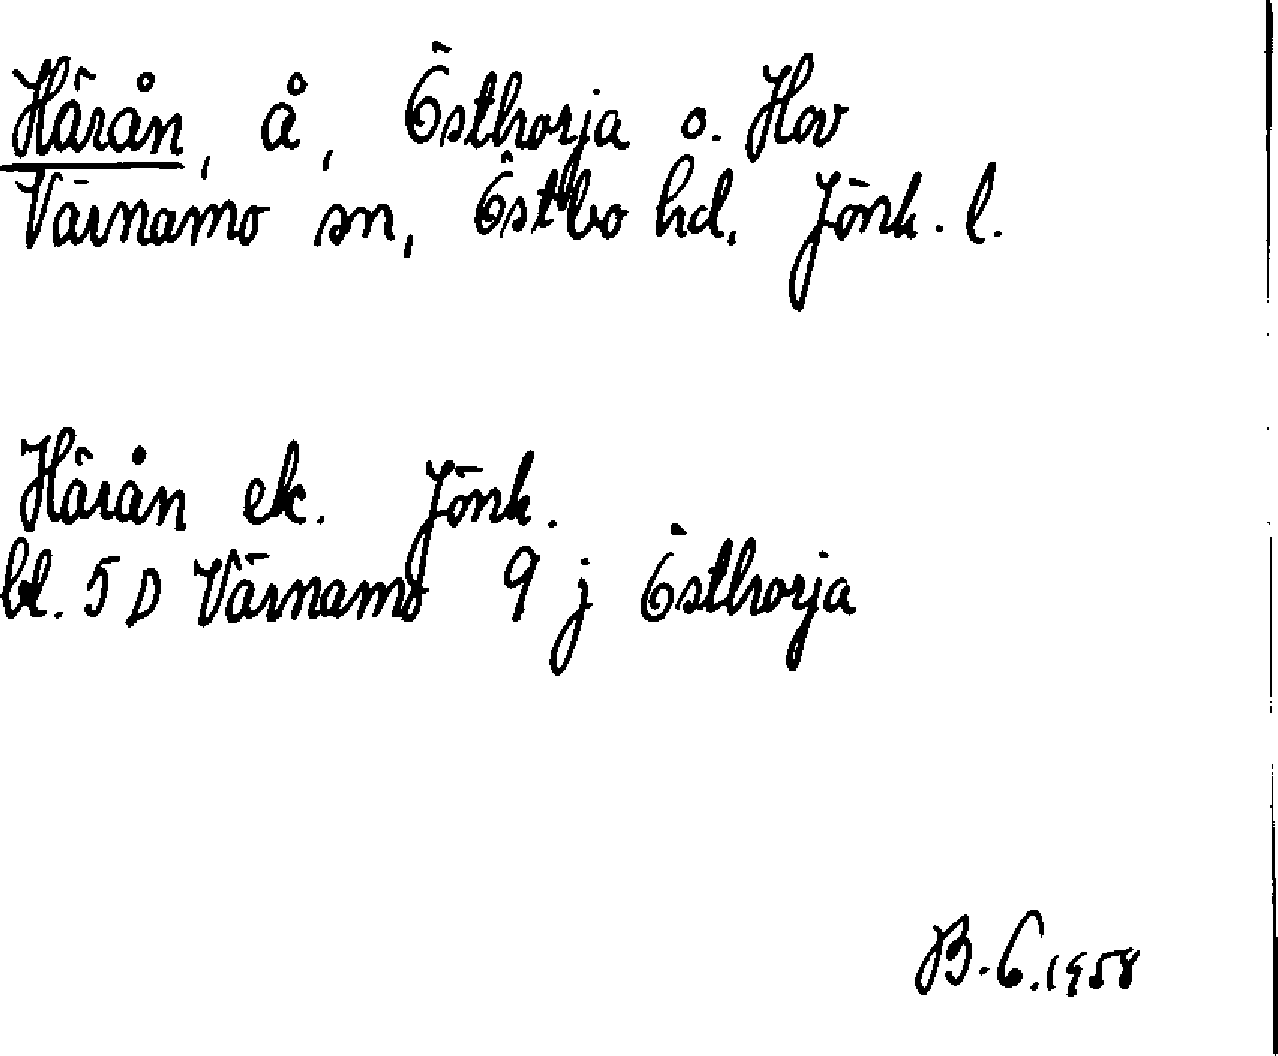 Härån, å, Östhorja o. Hov
Värnamo sn, Östbo hd, Jönk. l.
Härån ek. Jönk.
bl. 5 D Värnamo 9 j Östhorja
B.G.1958